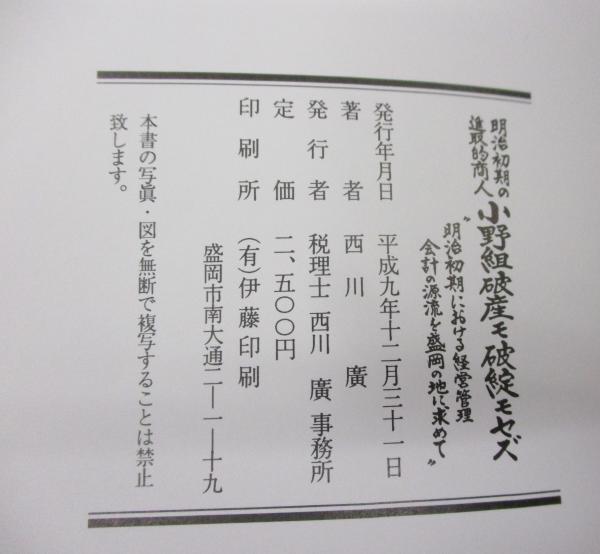 明治初期の
進取的商人
小野組破産モ破綻モセズ
〝明治初期における経営管理
会計の源流を盛岡の地に求めて〟
発行年月日 平成九年十二月三十一日
著者 西川廣
発行者 税理士 西川廣事務所
定価 二、五〇〇円
印刷所 (有)伊藤印刷
盛岡市南大通二―一―十九
本書の写眞・図を無断で複写することは禁止
致します。